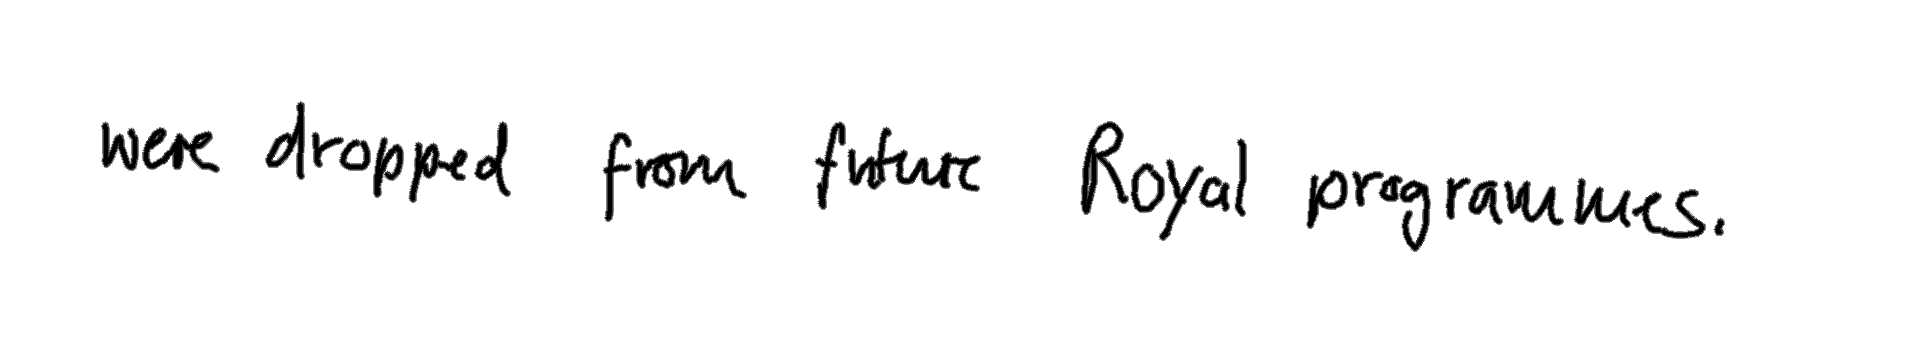 were dropped from future Royal programmes.